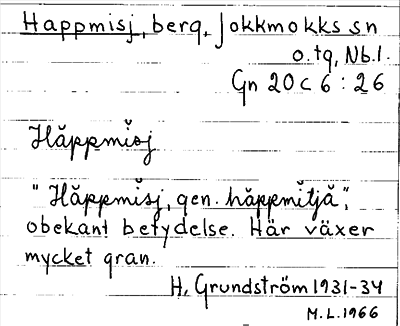 Happmisj, berg, Jokkmokks sn
o. tg, Nb.l.
Gn 20 C 6 : 26
Hăppmĭsj
"Hăppmĭsj, gen. hăppmĭtjă",
obekant betydelse. Här växer
mycket gran.
H. Grundström 1931-34
M.L. 1966